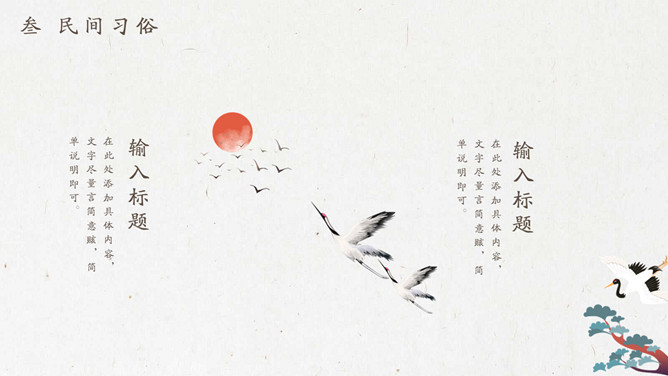 叁 民间习俗
输入标题
在此处添加具体内容，
文字尽量言简意赅，简
单说明即可。
输入标题
在此处添加具体内容，
文字尽量言简意赅，简
单说明即可。